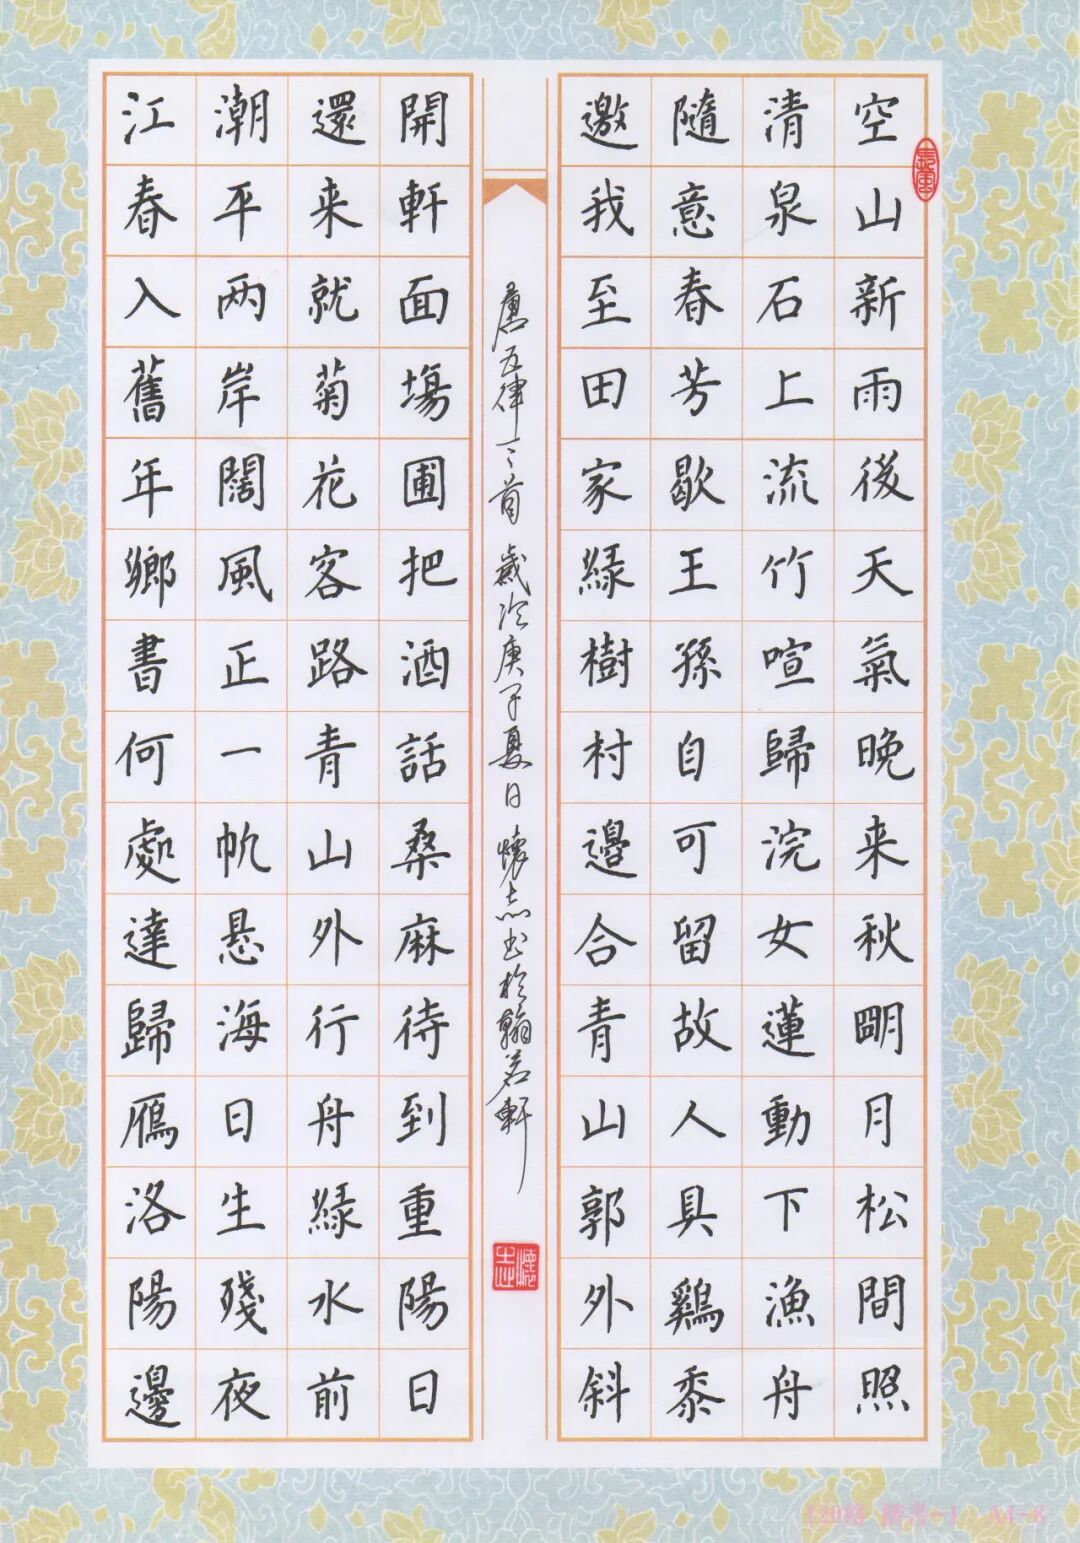 空山新雨後天氣晚来秋朙月松間照
清泉石上流竹喧歸浣女蓮動下漁舟
隨意春芳歇王孫自可留故人具鷄黍
邀我至田家綠樹村邊合青山郭外斜
唐五律三首 歲次庚子夏日 懷志书於翰茗軒
懷志
開軒面塲圃把酒話桑麻待到重陽日
還来就菊花客路青山外行舟綠水前
潮平两岸闊風正一帆悬海日生殘夜
江春入舊年鄉書何處達歸雁洛陽邊